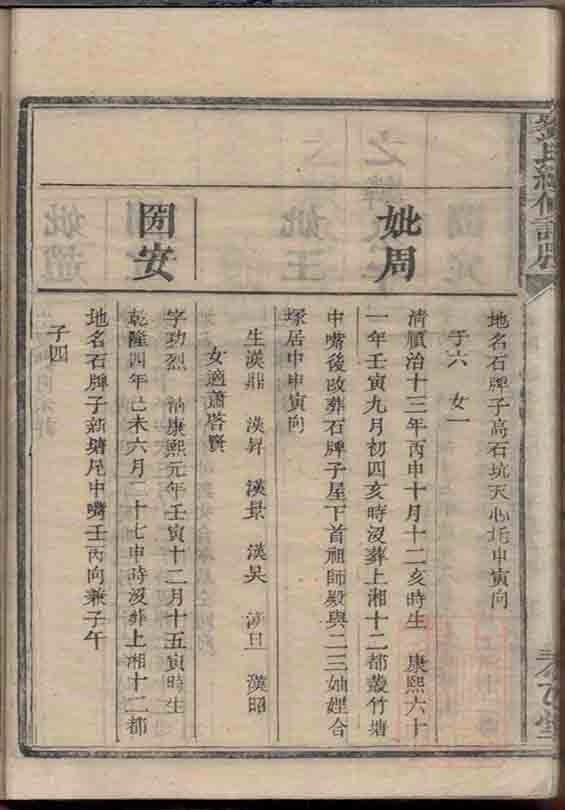 地名石牌子高石坑天心坵申寅向
子六 女一
妣周
清順治十三年丙申十月十二亥時生 康熙六十
一年壬寅九月初四亥時沒葬上湘十二都叢竹塘
中嘴後改葬石牌子屋下首祖師殿與二三妯娌合
塚居中申寅向
生漢鼎 漢昇 漢景 漢昊 漢旦 漢昭
女適蕭塔賢
圀安
字功烈 清康熙元年壬寅十二月十五寅時生
乾隆四年己未六月二十七申時沒葬上湘十二都
地名石牌子新塘尾中嘴壬丙向兼子午
子四